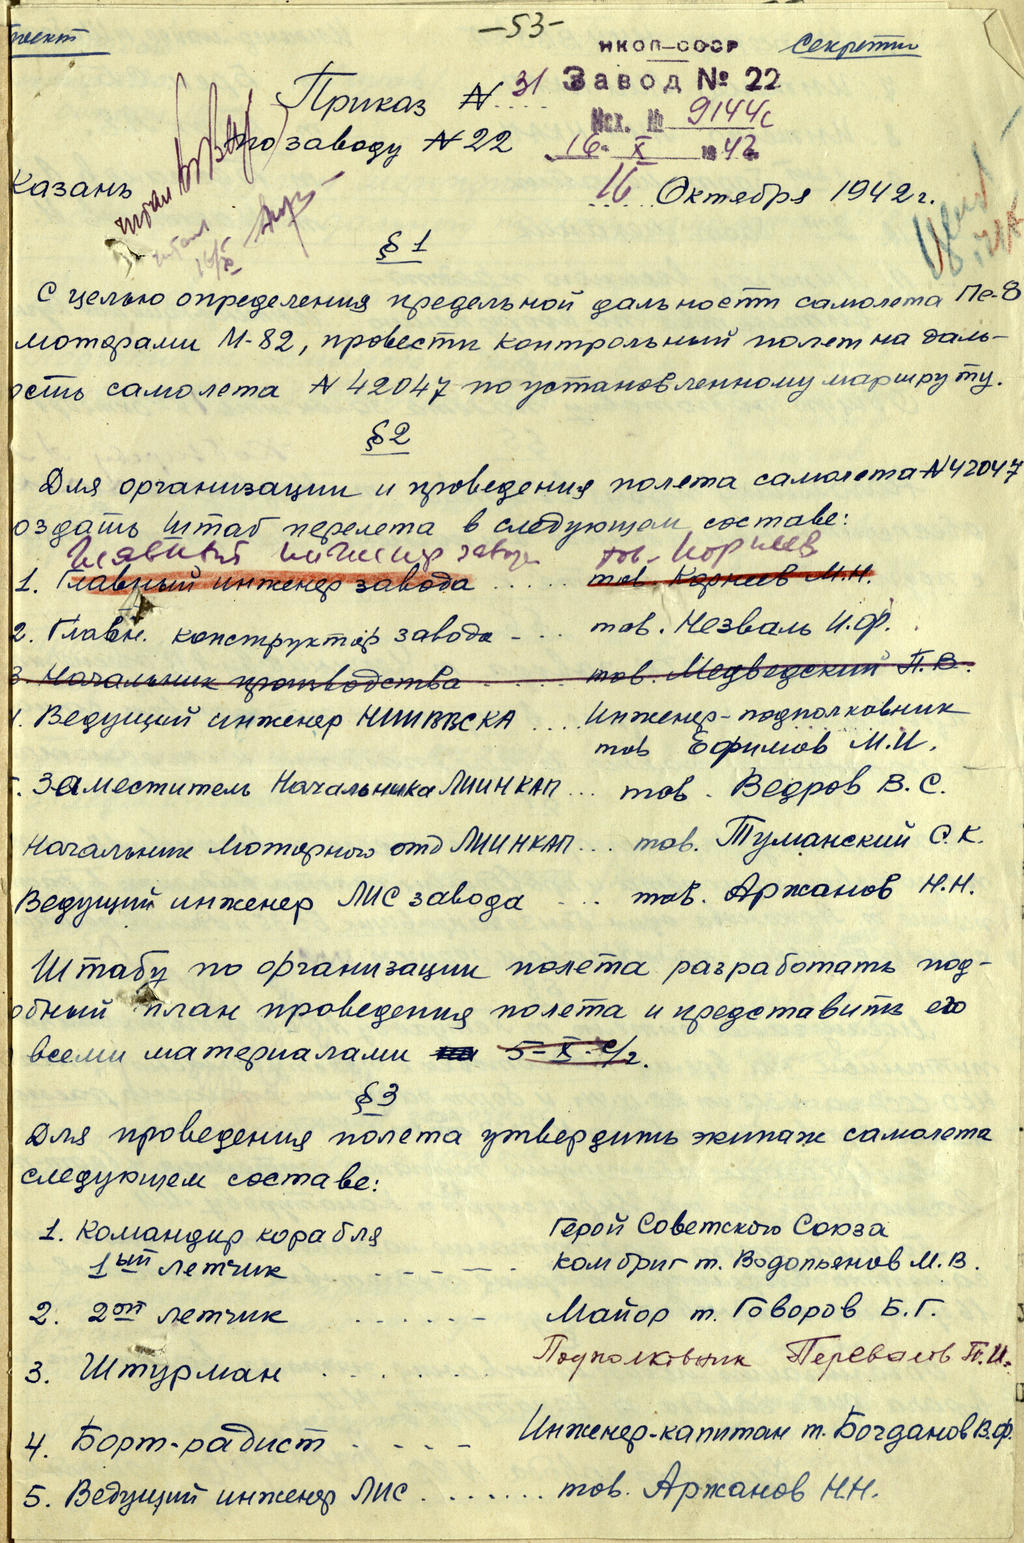 -53-
проект
НКОП-СССР
Секретно
Приказ № 31
Завод № 22
по заводу № 22
Исх. № 9144с
16 X 1942
Казань
16 Октября 1942 г.
читал
читал
16/X
§ 1
С целью определения предельной дальности самолета Пе-8
моторами М-82, провести контрольный полет на даль-
ость самолета № 42047 по установленному маршруту.
§ 2
Для организации и проведения полета самолета № 42047
оздать штаб перелета в следующем составе:
Главный инженер завода тов. Корнеев
1. Главный инженер завода .... тов. Корнеев М.Н.
2. Главн. конструктор завода - ... тов. Незваль И.Ф.
3. Начальник производства ..... тов. Медведский П.В.
4. Ведущий инженер НИИВВСКА ... Инженер-подполковник
тов Ефимов М.И.
5. Заместитель Начальника ЛИИНКАП ... тов. Ведров В.С.
Начальник Моторного отд ЛИИНКАП ... тов. Туманский С.К.
Ведущий инженер ЛИС завода - ... тов. Аржанов Н.Н.
Штабу по организации полета разработать под-
обный план проведения полета и представить его
всеми материалами 5-X-с/г.
§ 3
Для проведения полета утвердить экипаж самолета
следующем составе:
1. Командир корабля Герой Советского Союза
1ый летчик - - - - - комбриг т. Водопьянов М.В.
2. 2ой летчик ...... - Майор т. Говоров Б.Г.
3. Штурман ....... Подполковник Перевалов П.И.
4. Борт-радист - - - - Инженер-капитан т. Богданов В.Ф.
5. Ведущий инженер ЛИС ....... тов. Аржанов Н.Н.